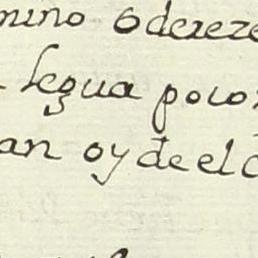 mino Oderez
legua poco
an oy de el